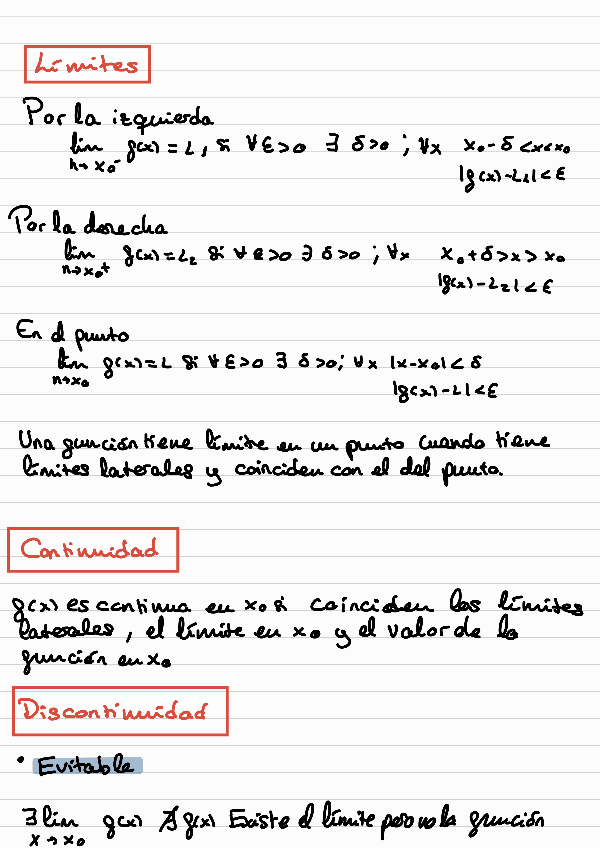 Límites
Por la izquierda
lim f(x) = L, si ∀ε>0 ∃ δ>0 ; ∀x x₀-δ<x<x₀
n→x₀⁻
|f(x)-L₁|<ε
Por la derecha
lim f(x)=L₂ si ∀ε>0 ∃ δ>0 ; ∀x x₀+δ>x>x₀
n→x₀⁺
|f(x)-L₂|<ε
En el punto
lim f(x)=L si ∀ε>0 ∃ δ>0; ∀x |x-x₀|<δ
n→x₀
|f(x)-L|<ε
Una función tiene límite en un punto cuando tiene
límites laterales y coinciden con el del punto.
Continuidad
f(x) es continua en x₀ si coinciden los límites
laterales, el límite en x₀ y el valor de la
función en x₀
Discontinuidad
• Evitable
∃ lim f(x) ∄ f(x) Existe el límite pero no la función
x→x₀